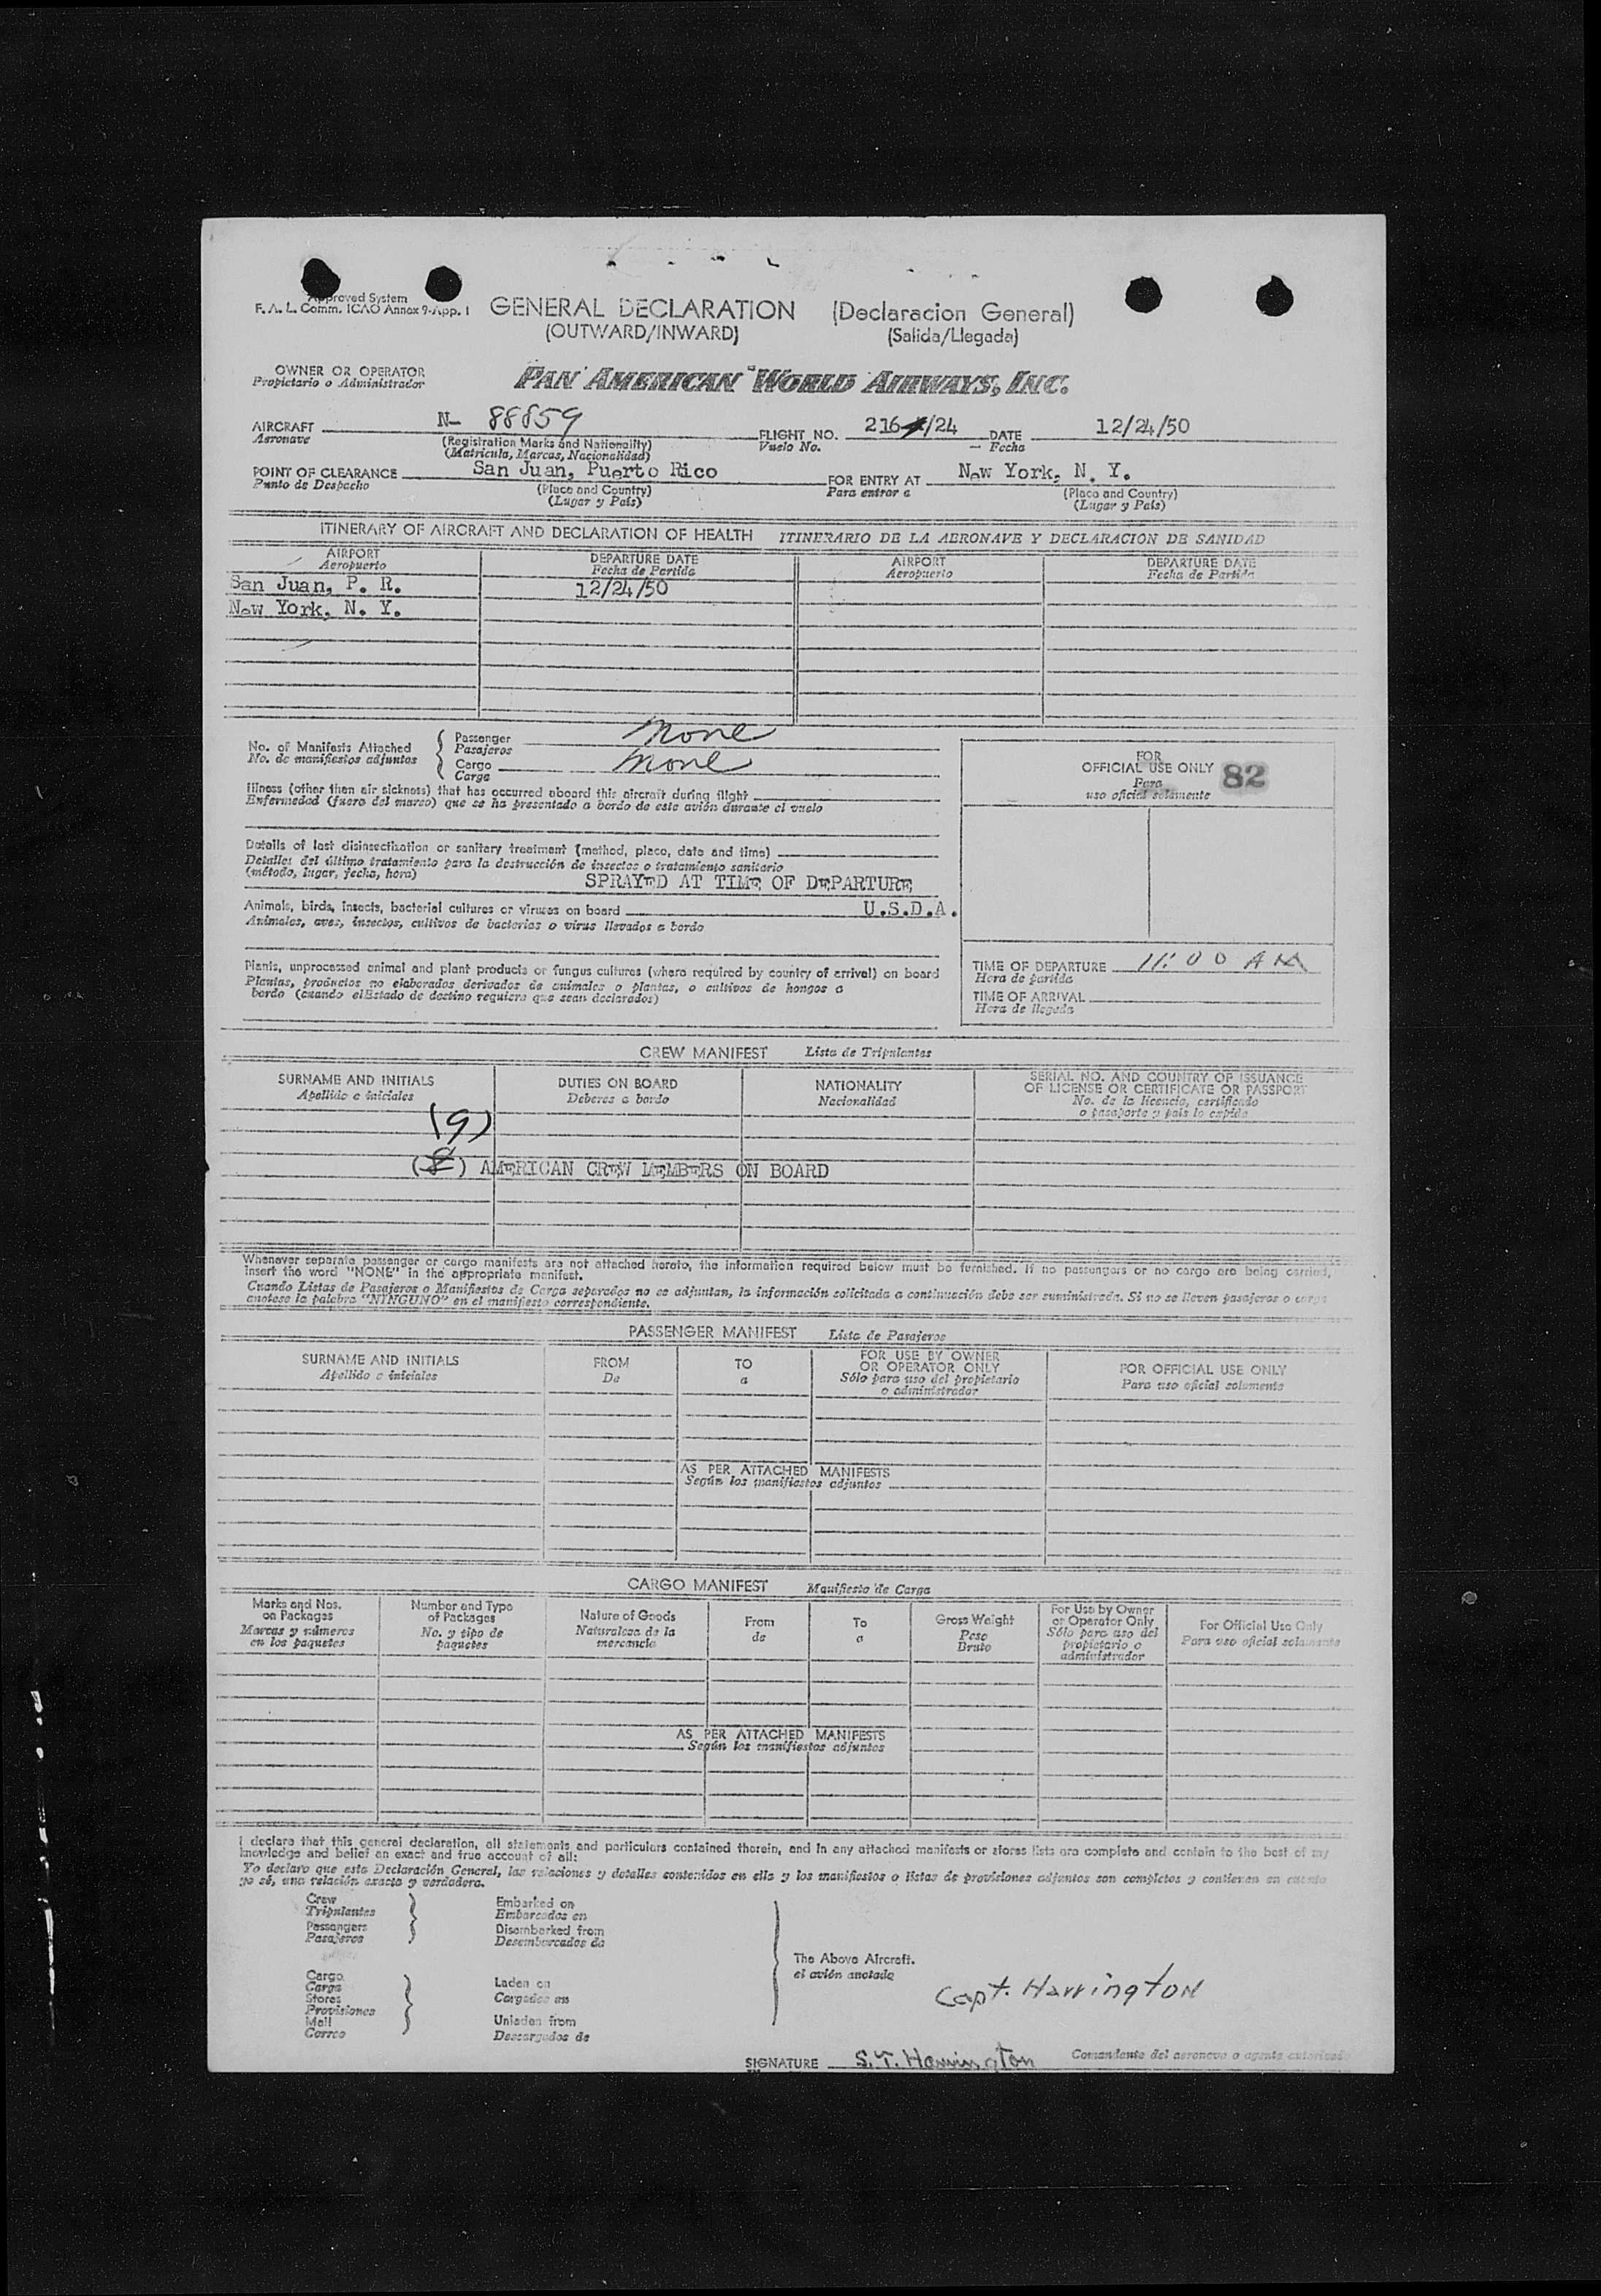 Approved System
F. A. L. Comm. ICAO Annex 9-App. 1
GENERAL DECLARATION (Declaracion General)
(OUTWARD/INWARD) (Salida/Llegada)
OWNER OR OPERATOR
Propietario o Administrador
PAN AMERICAN WORLD AIRWAYS, INC.
AIRCRAFT N- 88859 FLIGHT NO. 216 /24 DATE 12/24/50
Aeronave (Registration Marks and Nationality) Vuelo No. Fecha
(Matricula, Marcas, Nacionalidad)
POINT OF CLEARANCE San Juan, Puerto Rico FOR ENTRY AT New York, N. Y.
Punto de Despacho (Place and Country) Para entrar a (Place and Country)
(Lugar y País) (Lugar y País)
ITINERARY OF AIRCRAFT AND DECLARATION OF HEALTH ITINERARIO DE LA AERONAVE Y DECLARACION DE SANIDAD
AIRPORT DEPARTURE DATE AIRPORT DEPARTURE DATE
Aeropuerto Fecha de Partida Aeropuerto Fecha de Partida
San Juan, P. R. 12/24/50
New York, N. Y.
No. of Manifests Attached Passenger None
No. de manifiestos adjuntos Pasajeros
Cargo None
Carga
FOR
OFFICIAL USE ONLY 82
Para
uso oficial solamente
Illness (other than air sickness) that has occurred aboard this aircraft during flight
Enfermedad (fuera del mareo) que se ha presentado a bordo de este avión durante el vuelo
Details of last disinsectization or sanitary treatment (method, place, date and time)
Detalles del último tratamiento para la destrucción de insectos o tratamiento sanitario
(método, lugar, fecha, hora)
SPRAYED AT TIME OF DEPARTURE
Animals, birds, insects, bacterial cultures or viruses on board U.S.D.A.
Animales, aves, insectos, cultivos de bacterias o virus llevados a bordo
Plants, unprocessed animal and plant products or fungus cultures (where required by country of arrival) on board
Plantas, productos no elaborados derivados de animales o plantas, o cultivos de hongos a
bordo (cuando el Estado de destino requiera que sean declarados)
TIME OF DEPARTURE 11:00 AM
Hora de partida
TIME OF ARRIVAL
Hora de llegada
CREW MANIFEST Lista de Tripulantes
SURNAME AND INITIALS DUTIES ON BOARD NATIONALITY SERIAL NO. AND COUNTRY OF ISSUANCE
Apellido e iniciales Deberes a bordo Nacionalidad OF LICENSE OR CERTIFICATE OR PASSPORT
No. de la licencia, certificado
o pasaporte y país lo expide
(9)
(8) AMERICAN CREW MEMBERS ON BOARD
Whenever separate passenger or cargo manifests are not attached hereto, the information required below must be furnished. If no passengers or no cargo are being carried,
insert the word "NONE" in the appropriate manifest.
Cuando Listas de Pasajeros o Manifiestos de Carga separados no se adjuntan, la información solicitada a continuación debe ser suministrada. Si no se llevan pasajeros o carga
anotese la palabra "NINGUNO" en el manifiesto correspondiente.
PASSENGER MANIFEST Lista de Pasajeros
SURNAME AND INITIALS FROM TO FOR USE BY OWNER FOR OFFICIAL USE ONLY
Apellido e iniciales De a OR OPERATOR ONLY Para uso oficial solamente
Sólo para uso del propietario
o administrador
AS PER ATTACHED MANIFESTS
Según los manifiestos adjuntos
CARGO MANIFEST Manifiesto de Carga
Marks and Nos. Number and Type Nature of Goods From To Gross Weight For Use by Owner For Official Use Only
on Packages of Packages Naturaleza de la de a Peso or Operator Only Para uso oficial solamente
Marcas y números No. y tipo de mercancía Bruto Sólo para uso del
en los paquetes paquetes propietario o
administrador
AS PER ATTACHED MANIFESTS
Según los manifiestos adjuntos
I declare that this general declaration, all statements and particulars contained therein, and in any attached manifests or stores lists are complete and contain to the best of my
knowledge and belief an exact and true account of all:
Yo declaro que esta Declaración General, las relaciones y detalles contenidos en ella y los manifiestos o listas de provisiones adjuntos son completos y contienen en cuanto
yo sé, una relación exacta y verdadera.
Crew Embarked on
Tripulantes Embarcados en
Passengers Disembarked from
Pasajeros Desembarcados de
The Above Aircraft.
el avión anotado
Cargo Laden on
Carga Cargados en
Stores
Provisiones
Mail Unladen from
Correo Descargados de
Capt. Harrington
SIGNATURE S. T. Harrington Comandante del aeronave o agente autorizado